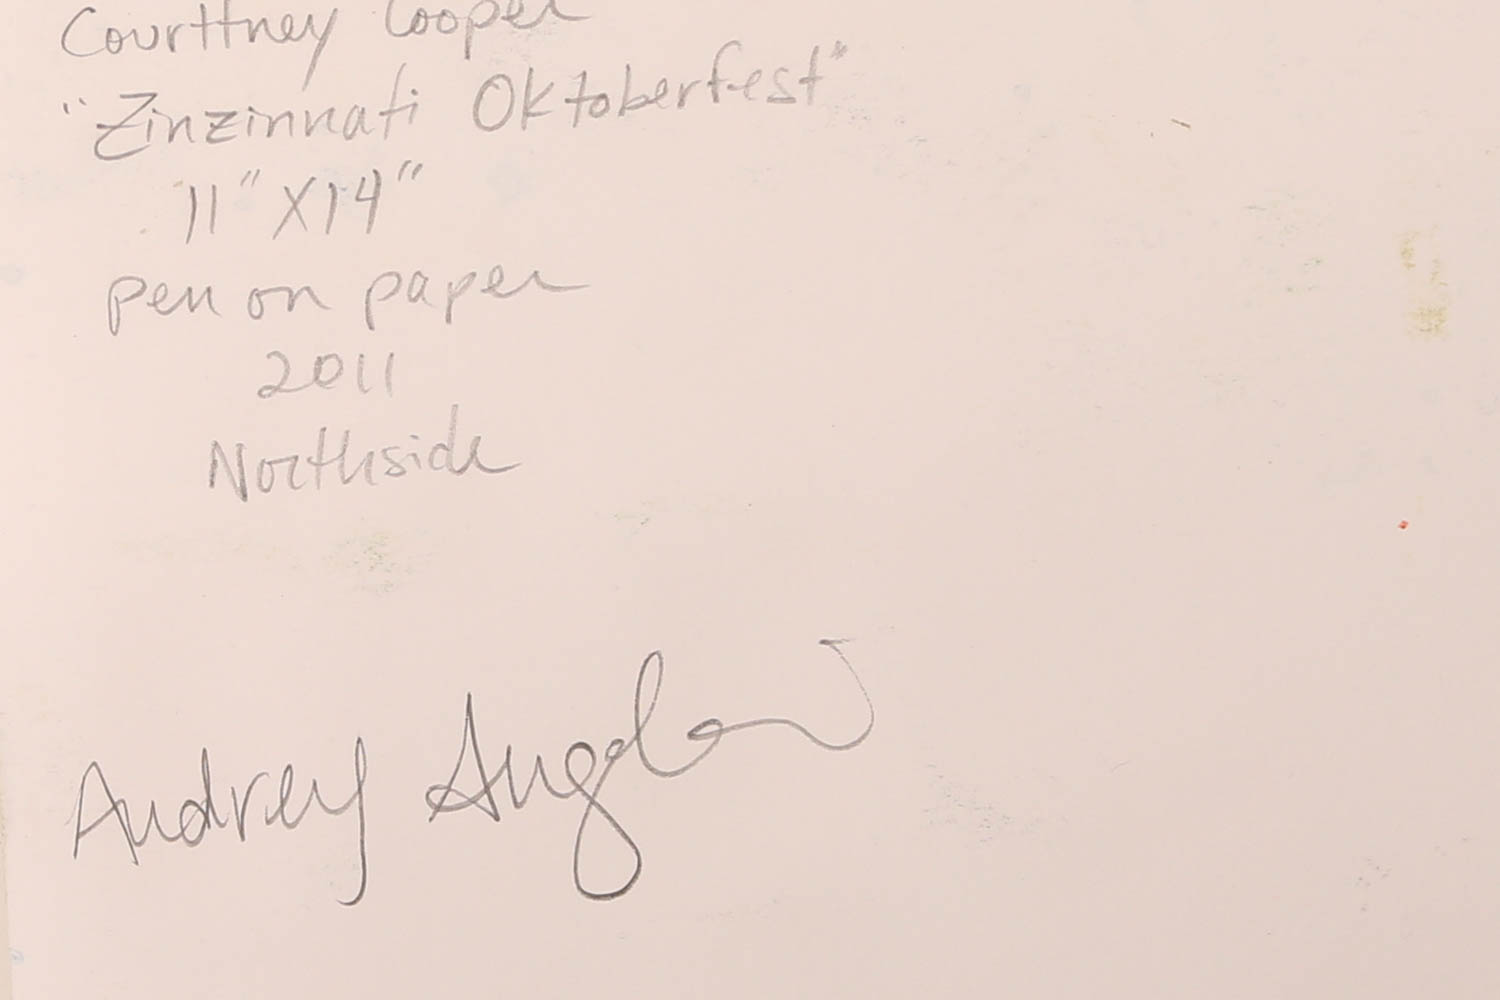 Courttney Cooper
"Zinzinnati Oktoberfest"
11" X14"
pen on paper
2011
Northside
Audrey